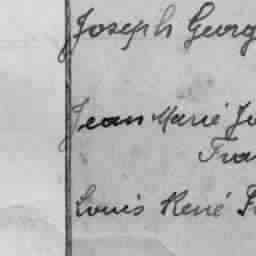 Joseph Georg
Jean Marie Ju
Fra
Louis René F